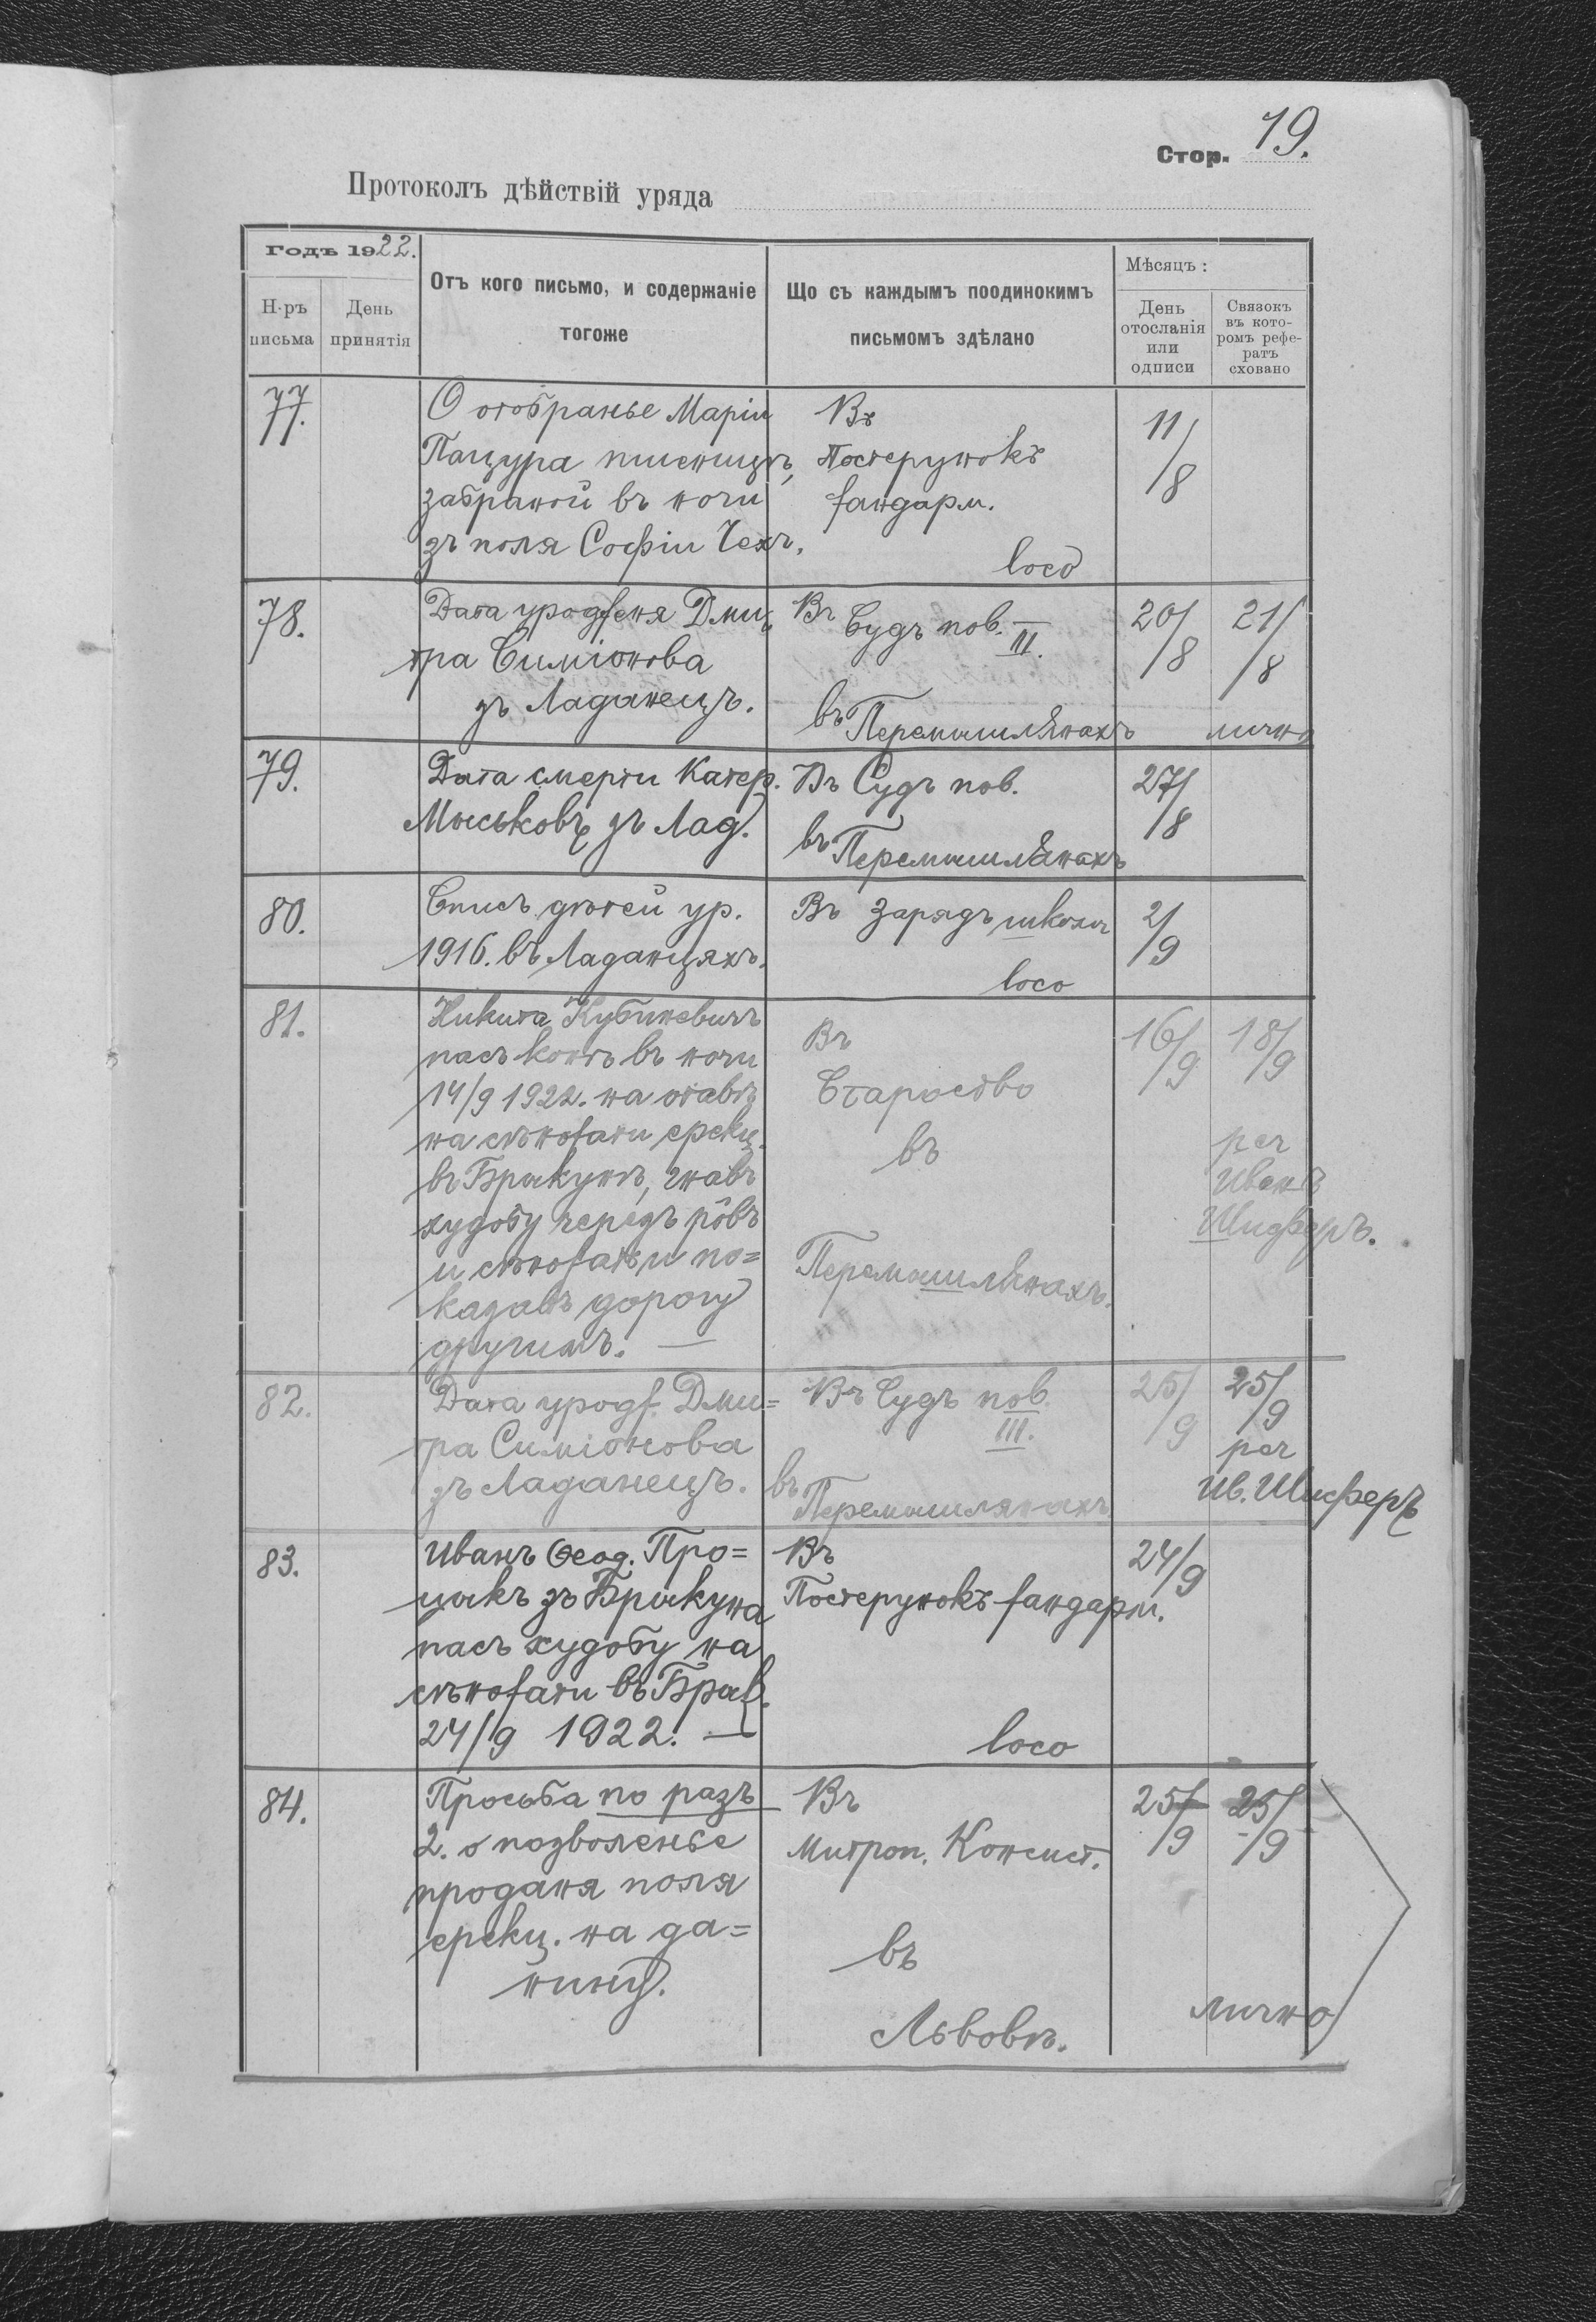 Стор. 19.
Протоколъ дѣйствій уряда
Годъ 1922.
Н-ръ письма
День принятія
Отъ кого письмо, и содержаніе
тогоже
Що съ каждымъ поодинокимъ
письмомъ здѣлано
Мѣсяцъ :
День
отосланія
или
одписи
Связокъ
въ кото-
ромъ рефе-
ратъ
сховано
77.
О отобранье Маріи
Пацура пшеницѣ,
забраной въ ночи
зъ поля Софіи Чехъ.
Въ
Постерунокъ
жандарм.
loco
11/8
78.
Дата уродженя Дми-
тра Симіонова
зъ Ладанецъ.
Въ Судъ пов. III.
въ Перемышлянахъ
20/8
21/8
лично
79.
Дата смерти Катер.
Миськовъ зъ Лад.
Въ Судъ пов.
въ Перемышлянахъ
27/8
80.
Списъ дѣтей ур.
1916. въ Ладанцяхъ.
Въ Зарядъ школы
loco
2/9
81.
Никита Кубиневичъ
пасъ конѣ въ ночи
14/9 1922. на отавѣ
на сѣножати ерекц.
въ Брыкунѣ, гнавъ
худобу черезъ рôвъ
и сѣножать и по=
казавъ дорогу
другимъ. —
Въ
Староство
въ
Перемышлянахъ.
16/9
18/9
рег
Иванъ
Шифферъ.
82.
Дата уродж. Дми=
тра Симіонова
зъ Ладанецъ.
Въ Судъ пов.
III.
въ Перемышлянахъ
25/9
25/9
рег
Ив. Шифферъ
83.
Иванъ Ѳеод. Про=
цыкъ зъ Брыкуна
пасъ худобу на
сѣножати въ Брык.
24/9 1922. —
Въ
Постерунокъ жандарм.
loco
24/9
84.
Просьба по разъ
2. о позволенье
проданя поля
ерекц. на да=
нину.
Въ
Митроп. Консист.
въ
Львовѣ.
25/9
25/9
лично